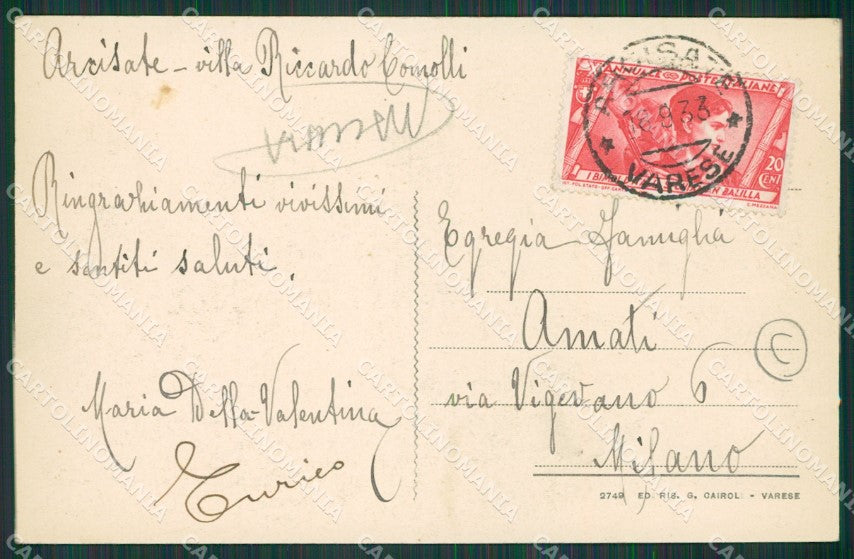 Arcisate - villa Riccardo Comolli
Ringraziamenti vivissimi
e sentiti saluti.
Maria Della Valentina
Enrico
ANNUALE POSTE ITALIANE
20
CENT
BALILLA
C. MEZZANA
ARCISATE
9.33
VARESE
Egregia Famiglia
Amati
via Vigevano 6
Milano
C
2749 ED. RIS. G. CAIROLI - VARESE
CARTOLINOMANIA